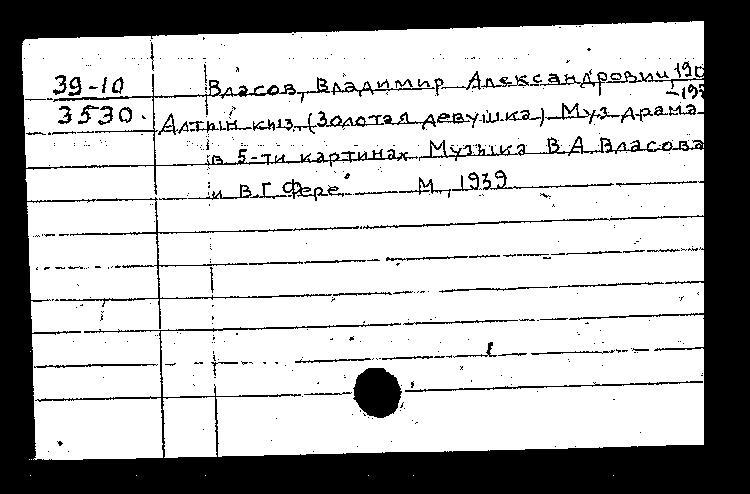 39-10
3530.
Власов, Владимир Александрович, 190
-198
Алтын кыз (Золотая девушка) Муз драма
в 5-ти картинах Музыка В А Власова
и В.Г. Фере М., 1939